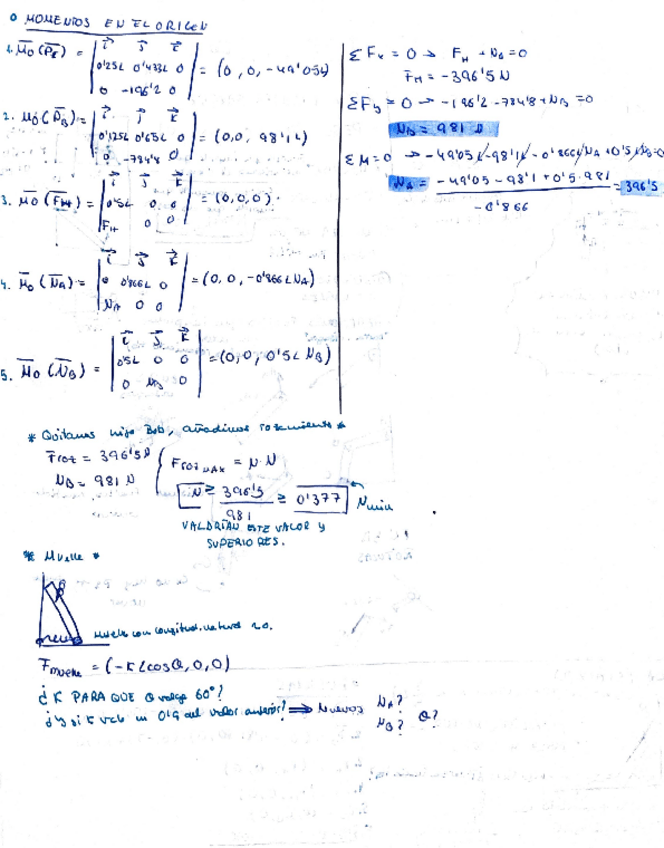 ° MOMENTOS EN EL ORIGEN
1. M̄o (P̄E) = | i⃗ j⃗ k⃗ | 0'25L 0'433L 0 | 0 -196'2 0 | = (0, 0, -49'05L)
2. M̄o (P̄B) = | i⃗ j⃗ k⃗ | 0'125L 0'65L 0 | 0 -784'8 0 | = (0,0, 98'1L)
3. M̄o (F̄H) = | i⃗ j⃗ k⃗ | 0'5L 0 0 | FH 0 0 | = (0,0,0).
4. M̄o (N̄A) = | i⃗ j⃗ k⃗ | 0 0'866L 0 | NA 0 0 | = (0, 0, -0'866LNA)
5. M̄o (N̄B) = | i⃗ j⃗ k⃗ | 0'5L 0 0 | 0 NB 0 | = (0, 0, 0'5L NB)
ΣFx = 0 → FH + NA = 0
FH = -396'5 N
ΣFy = 0 → -196'2 - 784'8 + NB = 0
NB = 981 N
ΣM = 0 → -49'05L - 98'1L - 0'866LNA + 0'5LNB = 0
NA = (-49'05 - 98'1 + 0'5·981) / -0'866 = 396'5
* Quitamos hijo Bob, añadimos rozamiento *
Froz = 396'5 N
NB = 981 N
Froz MAX = μ·N
μ ≥ 396'5 / 981 ≥ 0'377
VALDRÍAN ESTE VALOR Y
SUPERIORES.
* Muelle *
Muelle con longitud natural
Fmuelle = (-KLcosθ, 0, 0)
¿K PARA QUE θ valga 60°?
¿Y si K vale un 0'9 del valor anterior? ⟹ Nuevos NA? NB? θ?